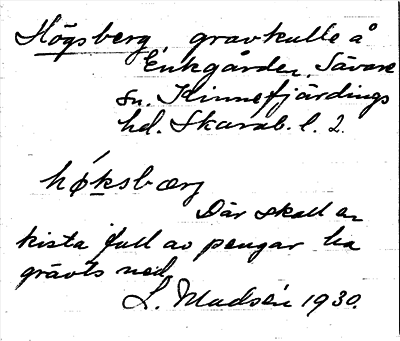 Högsberg gravkulle å
Enkgården, Sävare
sn. Kinnefjärdings
hd. Skarab. l. 2.
hǿksbærg
Där skall en
kista full av pengar ha
grävts ned.
L. Madsén 1930.